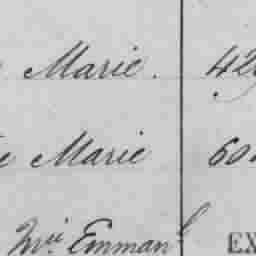 Marie. 42
e Marie 60
Mie Emman.l EX